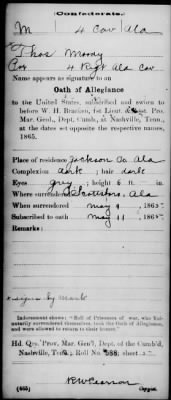 Confederate.
M 4 Cav Ala
Thos Moody
Pvt 4 Regt Ala Cav
Name appears as signature to an
Oath of Allegiance
to the United States, subscribed and sworn to
before W. H. Bracken, 1st Lieut. & Asst. Pro.
Mar. Genl., Dept. Cumb., at Nashville, Tenn.,
at the dates set opposite the respective names,
1865.
Place of residence Jackson Co Ala
Complexion dark ; hair dark
Eyes grey ; height 6 ft. in.
Where surrendered Scottsboro, Ala
When surrendered May 9, 1865
Subscribed to oath May 11, 1865
Remarks:
signs by mark
Indorsement shows: "Roll of Prisoners of war, who Vol-
untarily surrendered themselves, took the Oath of Allegiance,
and were allowed to return to their homes."
Hd. Qrs. Pro. Mar. Gen'l, Dept. of the Cumb'd,
Nashville, Tenn.; Roll No. 588; sheet
Copyist.